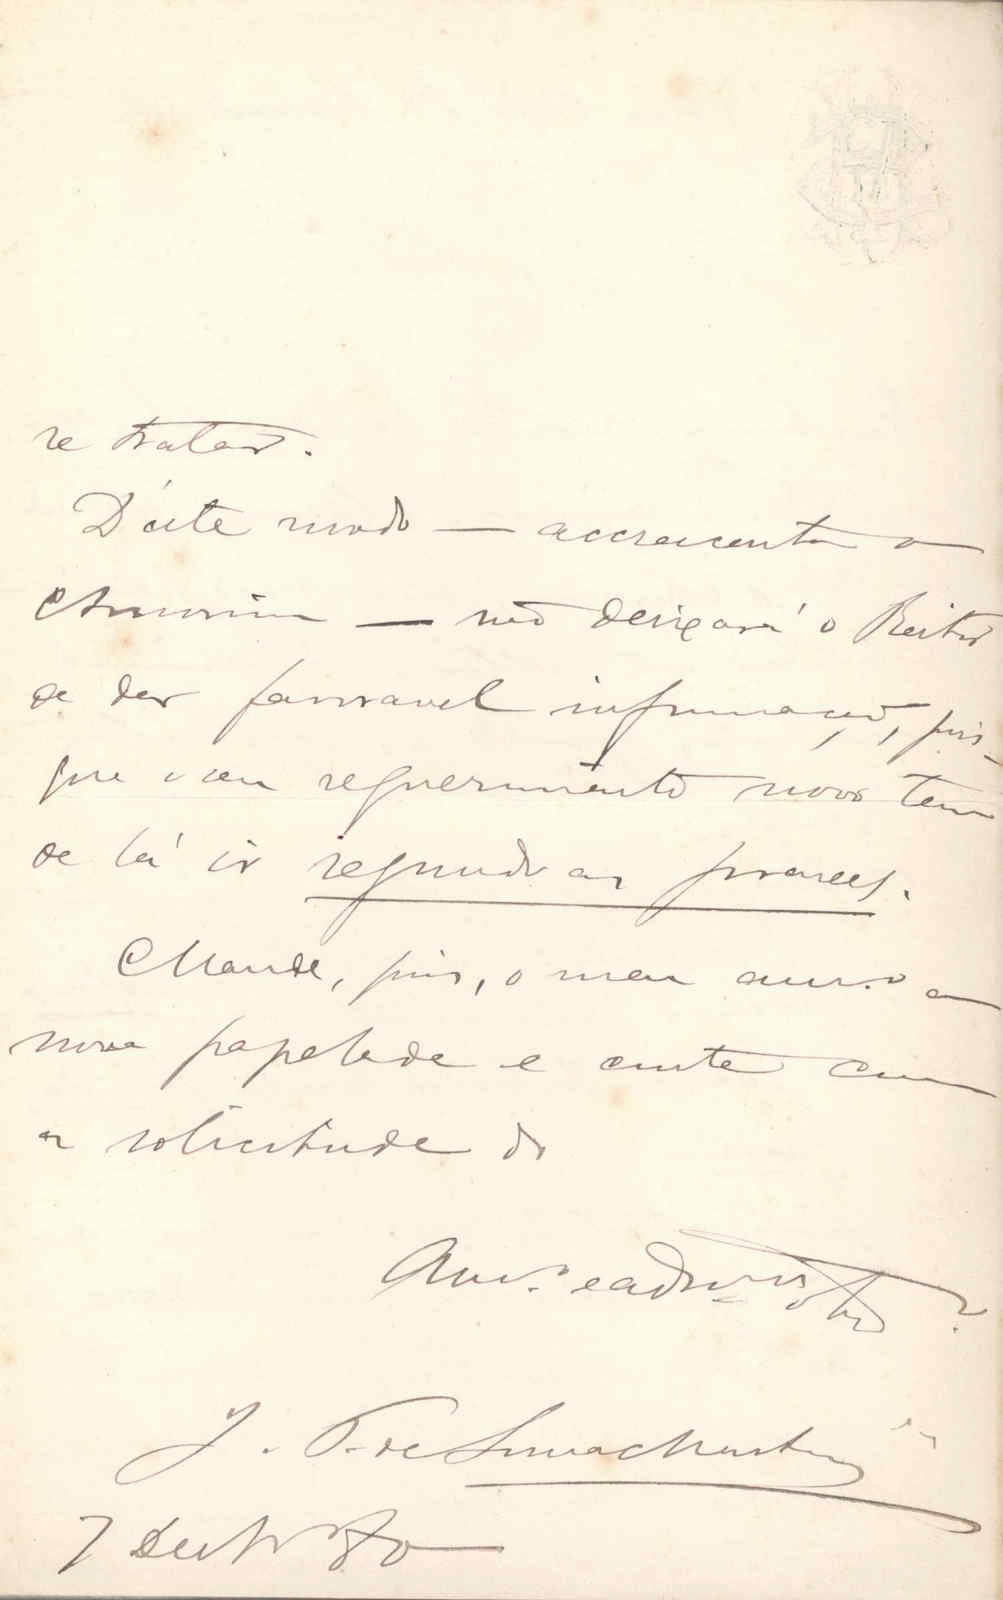 se tratar.
D'este modo — accrescenta o
Amorim — não deixará o Reitor
de dar favoravel informação, pois
que o seu requerimento novo tem
de lá ir segundo as praxes.
Mande, pois, o meu am.o a
nova papelada e conte com
a solicitude do
Am.o e admor
J. P. de Oliveira Martins
7 Dezbro 80